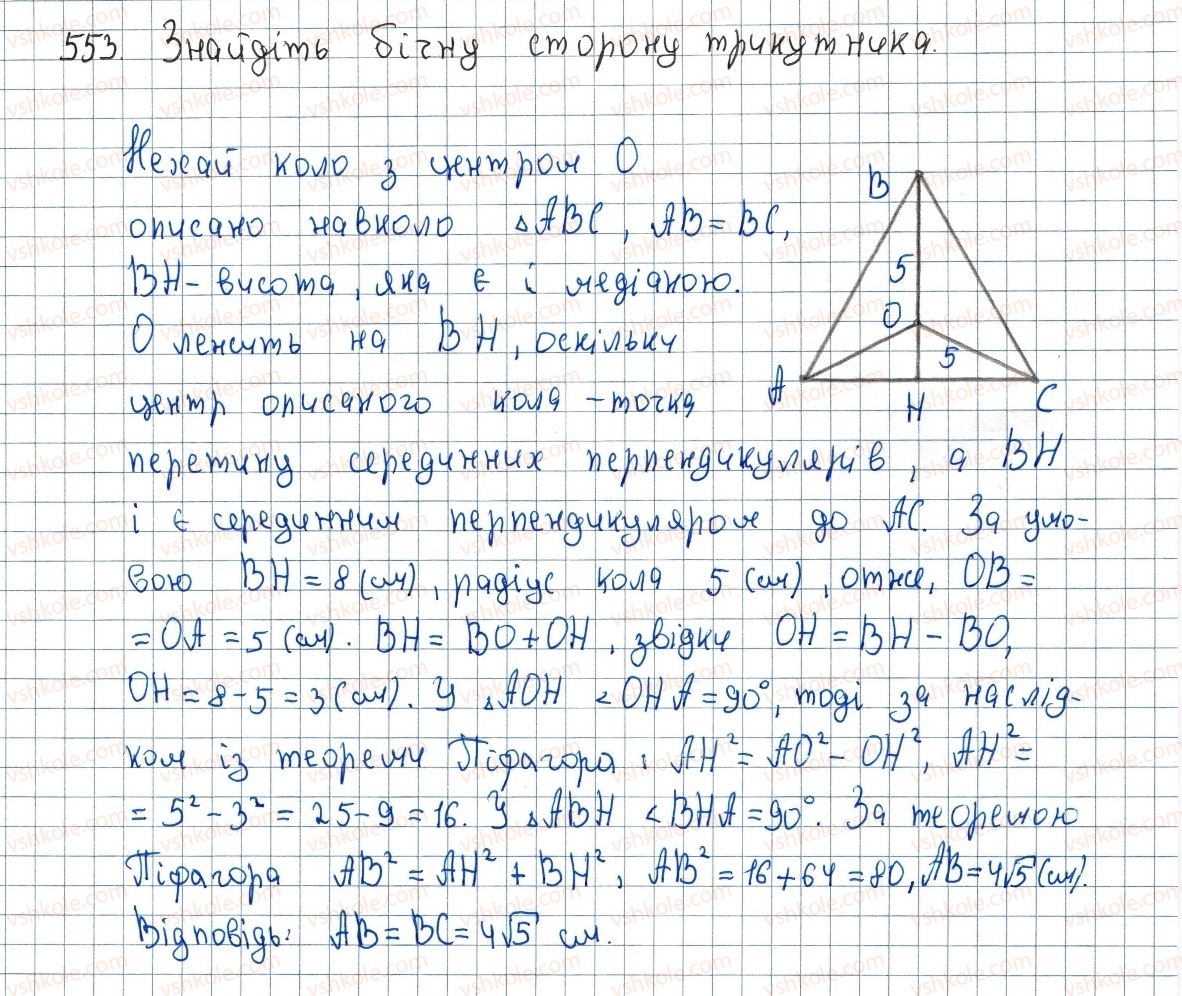 553. Знайдіть бічну сторону трикутника.
Нехай коло з центром О
описано навколо △ABC, AB = BC,
BH - висота, яка є і медіаною.
О лежить на BH, оскільки
центр описаного кола - точка
перетину серединних перпендикулярів, а BH
і є серединним перпендикуляром до AC. За умо-
вою BH = 8 (см), радіус кола 5 (см), отже, OB =
= OA = 5 (см). BH = BO + OH, звідки OH = BH - BO,
OH = 8 - 5 = 3 (см). У △AOH ∠OHA = 90°, тоді за наслід-
ком із теореми Піфагора: AH² = AO² - OH², AH² =
= 5² - 3² = 25 - 9 = 16. У △ABH ∠BHA = 90°. За теоремою
Піфагора AB² = AH² + BH², AB² = 16 + 64 = 80, AB = 4√5 (см).
Відповідь: AB = BC = 4√5 см.
B
5
O
5
A
H
C
vshkole.com